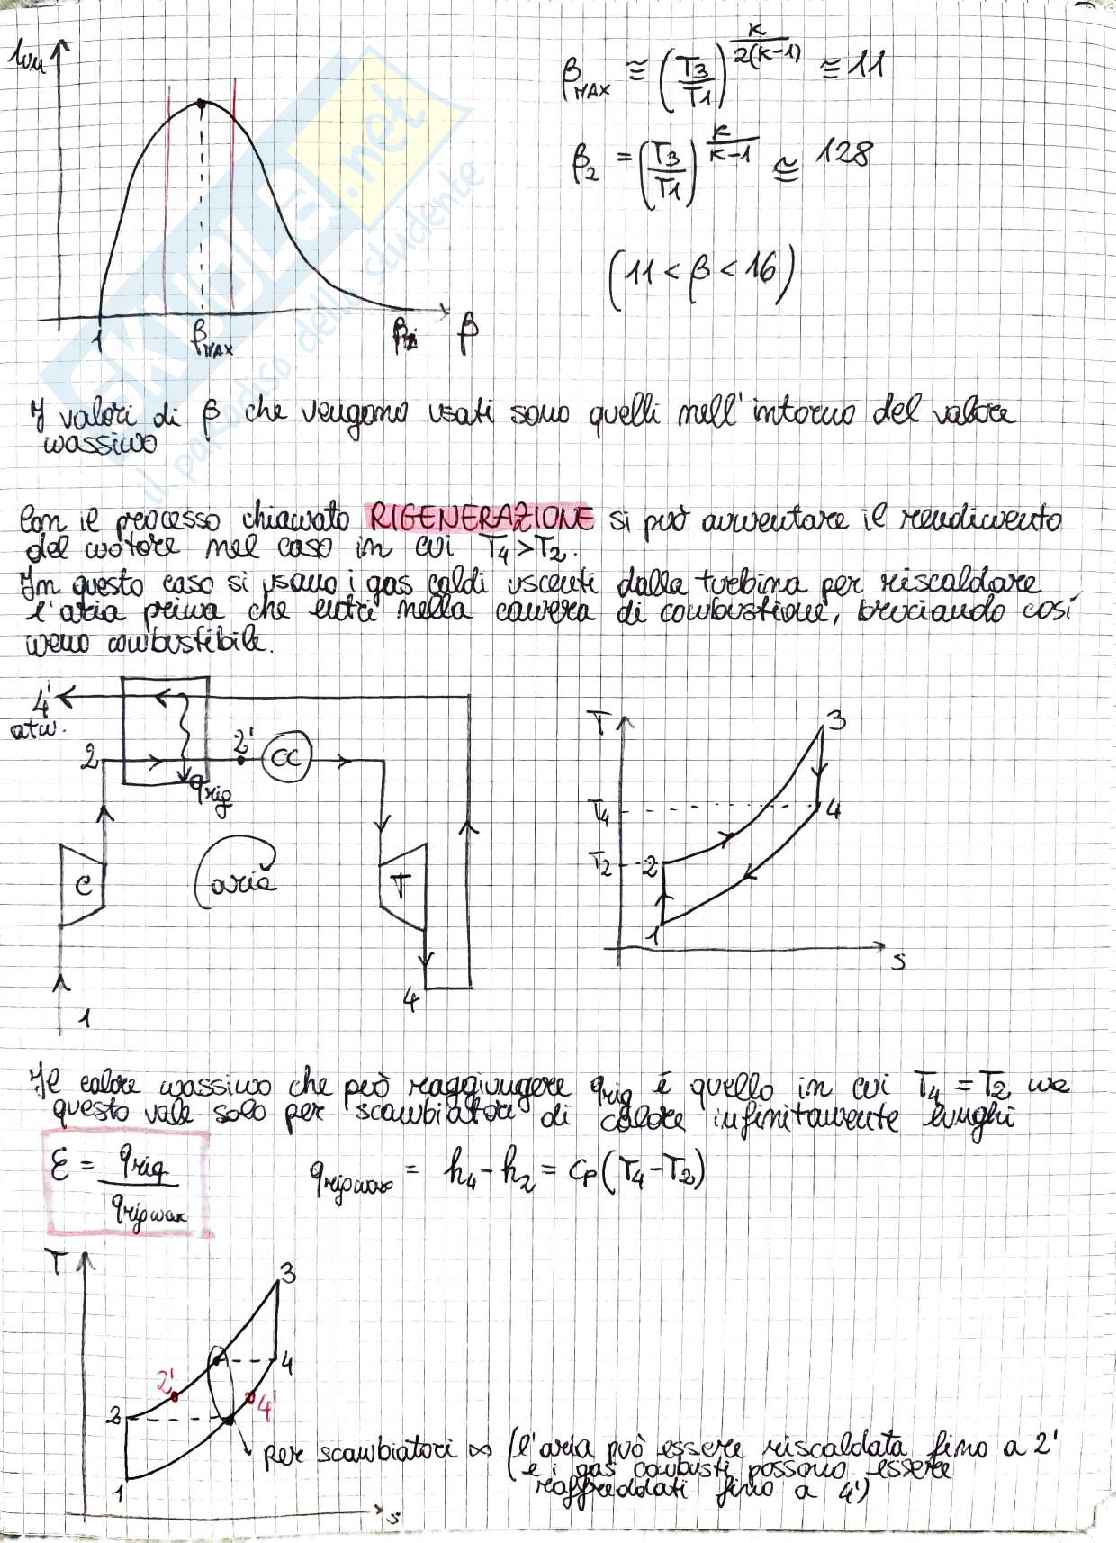 lou
β_MAX ≅ (T3/T1)^(K/2(K-1)) ≅ 11
β2 = (T3/T1)^(K/K-1) ≅ 128
(11 < β < 16)
1 β_MAX β2 β
SKUOLA.net
il paradiso dello studente
I valori di β che vengono usati sono quelli nell'intorno del valore
massimo
Con il processo chiamato RIGENERAZIONE si può aumentare il rendimento
del motore nel caso in cui T4>T2.
In questo caso si usano i gas caldi uscenti dalla turbina per riscaldare
l'aria prima che entri nella camera di combustione, bruciando così
meno combustibile.
4'
atm.
2 2' CC
qrig
C aria T
4
1
T 3
T4 4
T2 2
1 s
Il calore massimo che può raggiungere qrig è quello in cui T4 = T2 ma
questo vale solo per scambiatori di calore infinitamente lunghi
ε = qrig / qrigmax
qrigmax = h4 - h2 = cp(T4-T2)
T
3
4
2' 4'
2
1 s
per scambiatori ∞ (l'aria può essere riscaldata fino a 2'
e i gas combusti possono essere
raffreddati fino a 4')